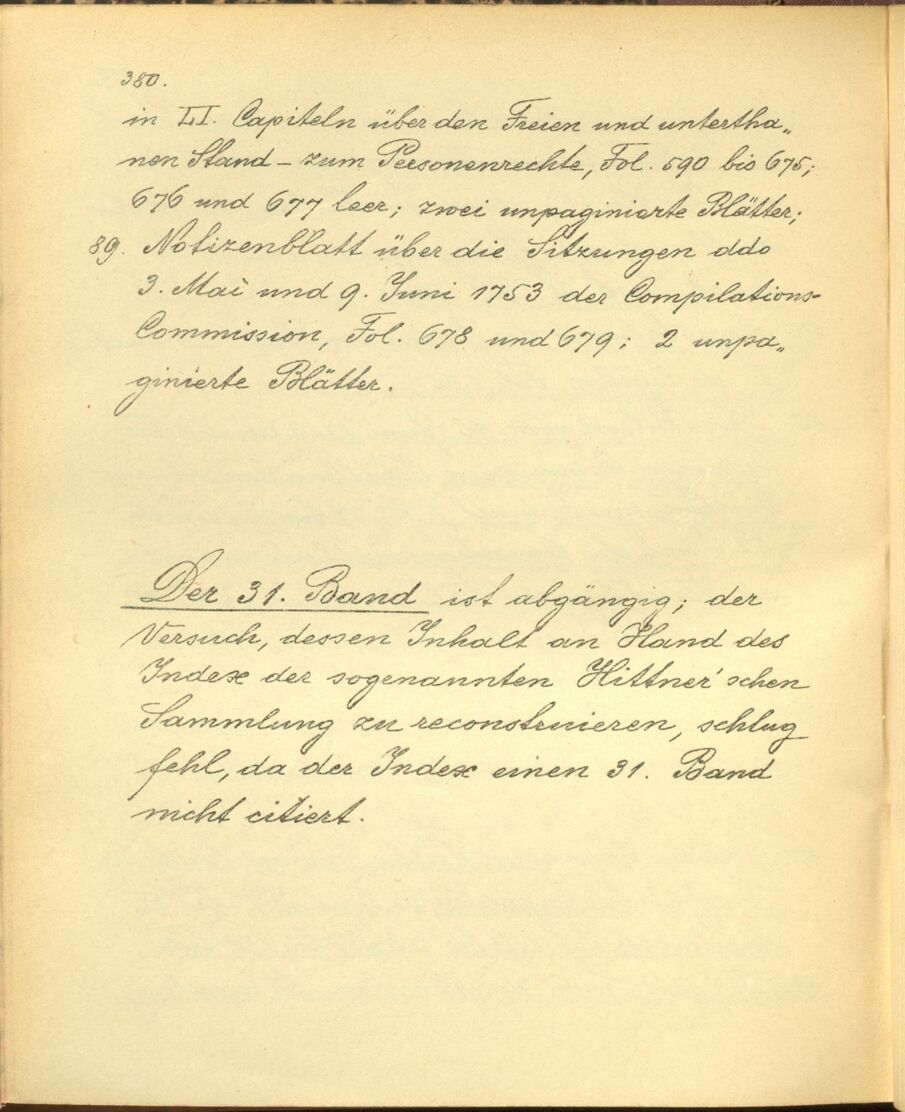 380.
in LI. Capiteln über den Freien und untertha„
nen Stand – zum Personenrechte, Fol. 590 bis 675;
676 und 677 leer; zwei unpaginierte Blätter;
89. Notizenblatt über die Sitzungen ddo
3. Mai und 9. Juni 1753 der Compilations-
Commission, Fol. 678 und 679; 2 unpa„
ginierte Blätter.
Der 31. Band ist abgängig; der
Versuch, dessen Inhalt an Hand des
Index der sogenannten Hittner'schen
Sammlung zu reconstruieren, schlug
fehl, da der Index einen 31. Band
nicht citiert.